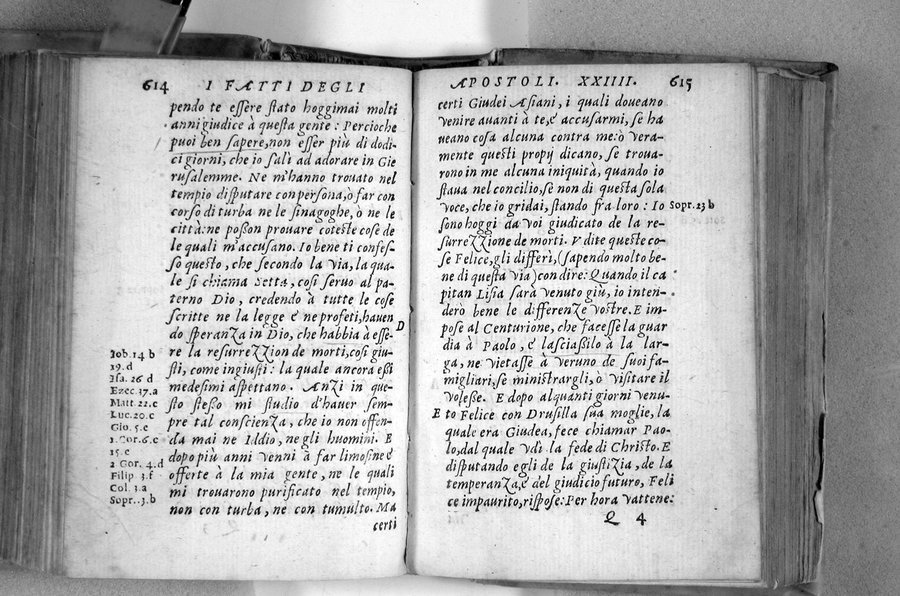 614 I FATTI DEGLI
pendo te eſſere ſtato hoggimai molti
anni giudice à queſta gente : Percioche
puoi ben ſapere, non eſſer più di dodi-
ci giorni, che io ſalì ad adorare in Gie
ruſalemme. Ne m'hanno trouato nel
tempio diſputare con perſona, ò far con
corſo di turba ne le ſinagoghe, ò ne le
città: ne poſſon prouare coteſte coſe de
le quali m'accuſano. Io bene ti confeſ-
ſo queſto, che ſecondo la Via, la qua-
le ſi chiama Setta, coſi ſeruo al pa-
terno Dio, credendo à tutte le coſe
ſcritte ne la legge é ne profeti, hauen
do ſperanza in Dio, che habbia à eſſe-
D
re la reſurrezzion de morti, coſi giu-
ſti, come ingiuſti : la quale ancora eßi
medeſimi aſpettano. Anzi in que-
ſto ſteſſo mi ſtudio d'hauer ſem-
pre tal conſcienza, che io non offen-
da mai ne Iddio, ne gli huomini. E
dopo più anni venni à far limoſine é
offerte à la mia gente, ne le quali
mi trouarono purificato nel tempio,
non con turba, ne con tumulto. Ma
certi
Iob. 14 b
19. d
Iſa. 26 d
Ezec. 37. a
Matt. 22. c
Luc. 20. e
Gio. 5. e
1 Cor. 6. c
15. c
2 Gor. 4. d
Filip. 3. f
Col. 3. a
Sopr. . 3. b
APOSTOLI. XXIIII. 615
certi Giudei Aſiani, i quali doueano
venire auanti à te, é accuſarmi, ſe ha
ueano coſa alcuna contra me: ò vera-
mente queſti propij dicano, ſe troua-
rono in me alcuna iniquità, quando io
ſtaua nel concilio, ſe non di queſta ſola
voce, che io gridai, ſtando fra loro : Io
Sopr. 23 b
ſono hoggi da voi giudicato de la re-
ſurrezzione de morti. Vdite queſte co-
ſe Felice, gli differì, (ſapendo molto be-
ne di queſta via) con dire: Quando il ca
pitan Liſia ſarà venuto giù, io inten-
derò bene le differenze voſtre. E im-
poſe al Centurione, che faceſſe la guar
dia à Paolo, é laſciaßilo à la lar-
ga, ne vietaſſe à veruno de ſuoi fa-
migliari, ſe miniſtrargli, ò viſitare il
voleſſe. E dopo alquanti giorni venu-
E
to Felice con Druſilla ſua moglie, la
quale era Giudea, fece chiamar Pao-
lo, dal quale vdì la fede di Chriſto. E
diſputando egli de la giuſtizia, de la
temperanza, é del giudicio futuro, Feli
ce impaurito, riſpoſe: Per hora vattene:
Q 4